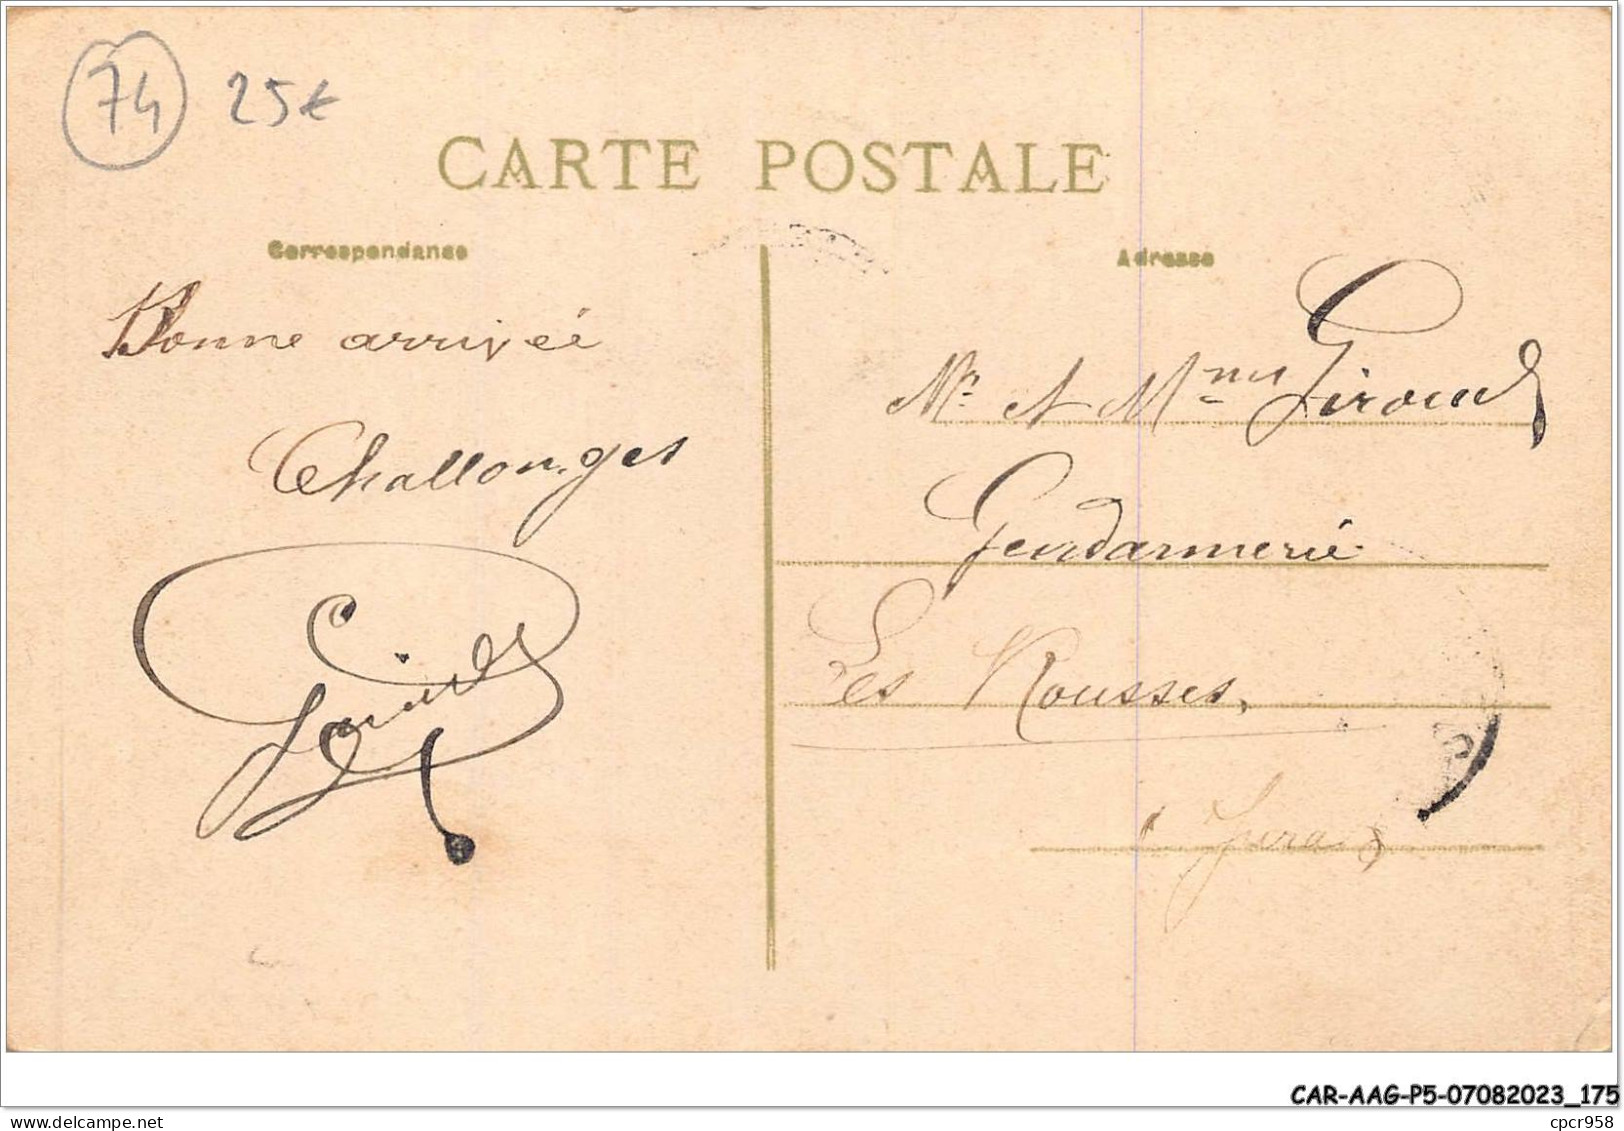 74 25€
CARTE POSTALE
Correspondance
Adresse
Bonne arrivée
Challonges
Mr et Mme Giroud
Gendarmerie
Les Rousses,
Jura
CAR-AAG-P5-07082023_175
cpcr958